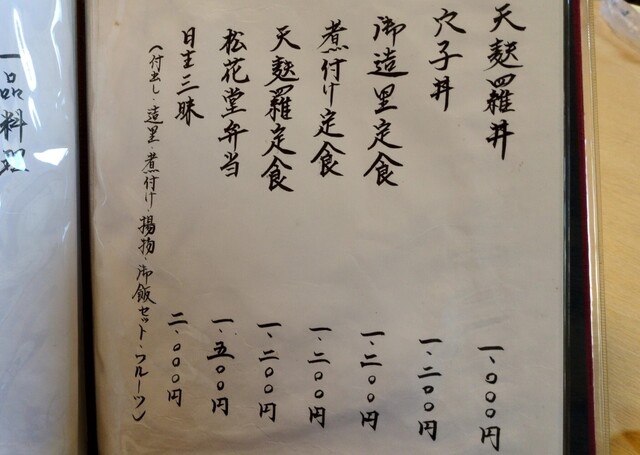 天麩羅丼 一、〇〇〇円
穴子丼 一、二〇〇円
御造里定食 一、二〇〇円
煮付け定食 一、二〇〇円
天麩羅定食 一、二〇〇円
松花堂弁当 一、五〇〇円
日生三昧 二、〇〇〇円
(付出し・造里・煮付け・揚物・御飯セット・フルーツ)
一品料理